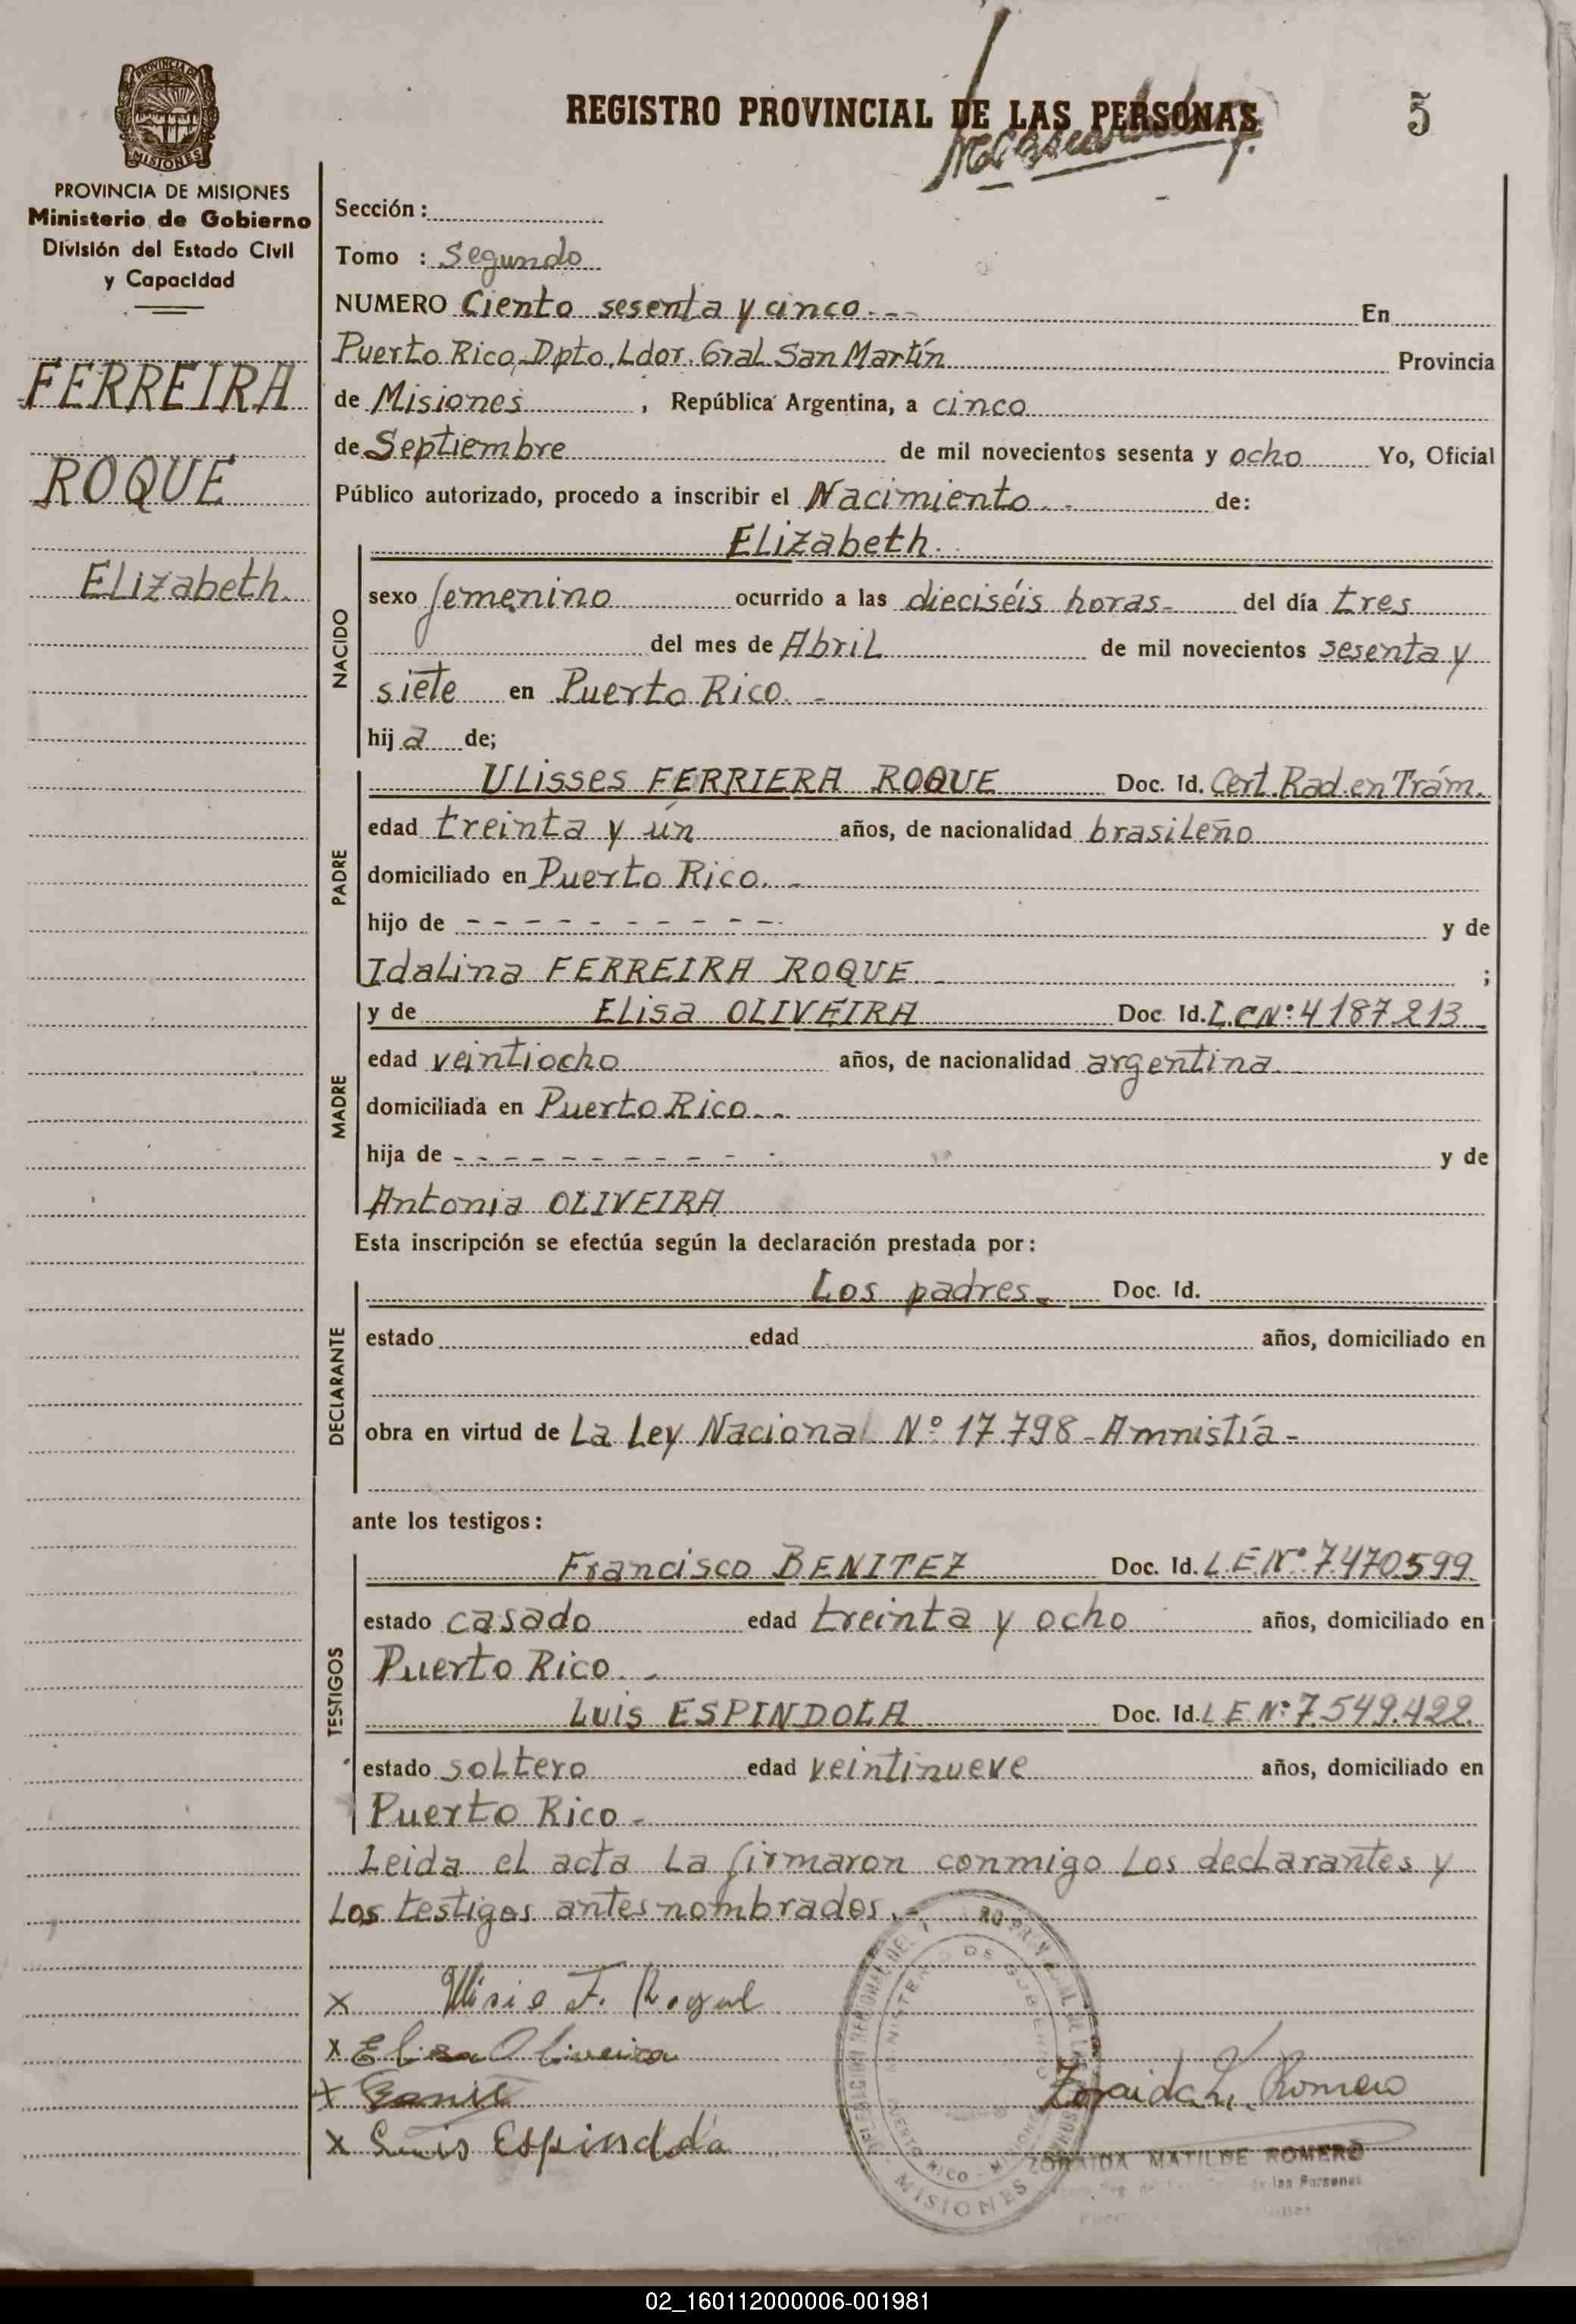 REGISTRO PROVINCIAL DE LAS PERSONAS
5
PROVINCIA DE MISIONES
PROVINCIA DE MISIONES
Ministerio de Gobierno
División del Estado Civil
y Capacidad
FERREIRA
ROQUE
Elizabeth.
Sección:
Tomo : Segundo
NUMERO Ciento sesenta y cinco.-- En
Puerto Rico, Dpto. Ldor. Gral. San Martín Provincia
de Misiones, República Argentina, a cinco
de Septiembre de mil novecientos sesenta y ocho Yo, Oficial
Público autorizado, procedo a inscribir el Nacimiento.- de:
NACIDO
Elizabeth.
sexo femenino ocurrido a las dieciséis horas- del día tres
del mes de Abril de mil novecientos sesenta y
siete en Puerto Rico.-
hija de;
PADRE
Ulisses FERRIERA ROQUE Doc. Id. Cert. Rad. en Trám.
edad treinta y ún años, de nacionalidad brasileño
domiciliado en Puerto Rico.-
hijo de - - - - - - - - - - y de
Idalina FERREIRA ROQUE - ;
MADRE
y de Elisa OLIVEIRA Doc. Id. L.C Nº: 4187213
edad veintiocho años, de nacionalidad argentina
domiciliada en Puerto Rico.-
hija de - - - - - - - - - - y de
Antonia OLIVEIRA
Esta inscripción se efectúa según la declaración prestada por:
DECLARANTE
Los padres.- Doc. Id.
estado edad años, domiciliado en
obra en virtud de La Ley Nacional Nº 17.798-Amnistía-
ante los testigos:
TESTIGOS
Francisco BENITEZ Doc. Id. L.E. Nº 7.470.599.
estado casado edad treinta y ocho años, domiciliado en
Puerto Rico.-
Luis ESPINDOLA Doc. Id. L E Nº: 7.549.422.
estado soltero edad veintinueve años, domiciliado en
Puerto Rico-
Leida el acta la firmaron conmigo los declarantes y
los testigos antes nombrados.-
X F.
X Elisa Oliveira
X
X Luis Espindola
Zoraida M. Romero
ZORAIDA MATILDE ROMERO
de las Personas
MINISTERIO DE GOBIERNO
PUERTO RICO - MISIONES
MISIONES
02_160112000006-001981